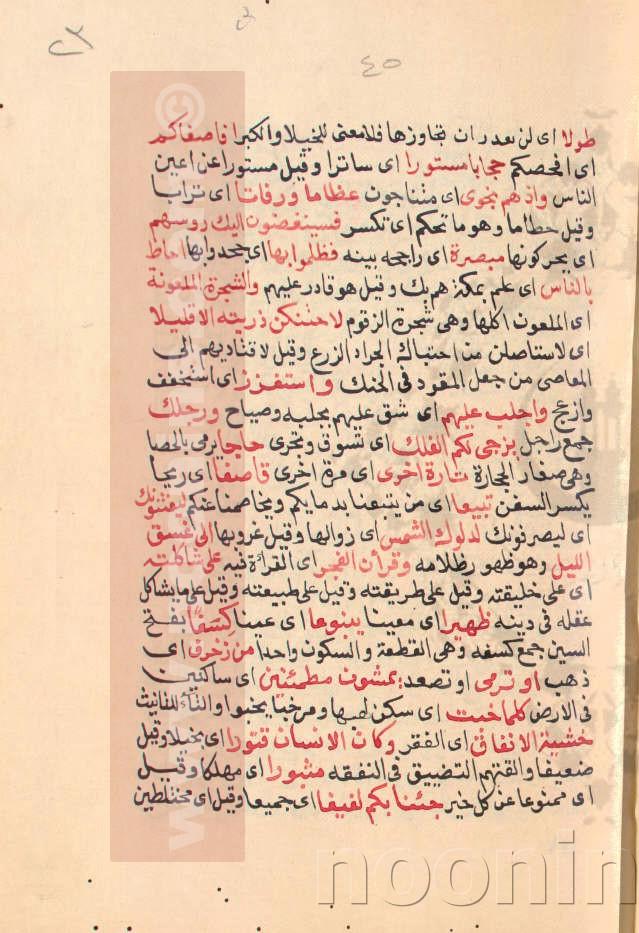 ٢٣
٤٥
طولا اى لن تقدر ان تجاوزها فلا معنى للخيلا والكبر افاصفاكم
اى افحصكم حجابا مستورا اى ساترا وقيل مستورا عن اعين
الناس واذهم نجوى اى متناجون عظاما ورفاتا اى ترابا
وقيل حطاما وهو ما تحكم اى تكسر فسينغضون اليك روسهم
اى يحركونها مبصرة اى راجحه بينه فظلموا بها اى جحدوا بها احاط
بالناس اى علم بمكة هم بك وقيل هو قادر عليهم والشجرة الملعونة
اى الملعون اكلها وهى شجرة الزقوم لاحتنكن ذريته الا قليلا
اى لاستاصلن من احتباك الجراد الزرع وقيل لاقتاديهم الى
المعاصى من جعل المقود فى الحنك واستفزز اى استخفف
وازعج واجلب عليهم اى شق عليهم بجلبه وصياح ورجلك
جمع راجل يزجى لكم الفلك اى تسوق وتجرى حاجبا يرمى بالحصا
وهى صغار الحجارة تارة اخرى اى مرة اخرى قاصفا اى ريحا
يكسر السفن تبيعا اى من يتبعنا بدمايكم ويخاصمنا عنكم ليفتنونك
اى ليصرفونك لدلوك الشمس اى زوالها وقيل غروبها الى غسق
الليل وهو ظهور ظلامه وقران الفجر اى القراة فيه على شاكلته
اى على خليقته وقيل على طريقته وقيل على طبيعته وقيل على ما يشاكل
عقله فى دينه ظهيرا اى معينا ينبوعا اى عينا كسفا بفتح
السين جمع كسفه وهى القطعة والسكون واحدا من زخرف اى
ذهب او ترقى او تصعد يمشون مطمئنين اى ساكنين
فى الارض كلما خبت اى سكن لهبها ومرخبا يخبوا والتاء للتانيث
خشية الانفاق اى الفقر وكان الانسان قتورا اى بخيلا وقيل
ضعيفا والقتهم التضييق فى النفقه مثبورا اى مهلكا وقيل
اى ممنوعا عن كل خير جئنا بكم لفيفا اى جميعا وقيل اى مختلطين
noonin